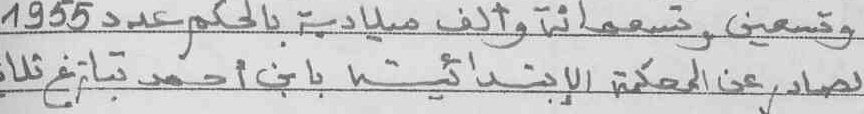 وتسعين وتسعمائة وألف ميلادية بالحكم عدد 1955
لصادر عن المحكمة الإبتدائية بابن أحمد بتاريخ ثلاث